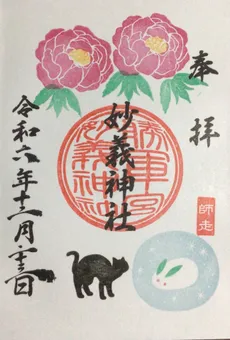 奉拝
師走
妙義神社
令和六年十二月 日